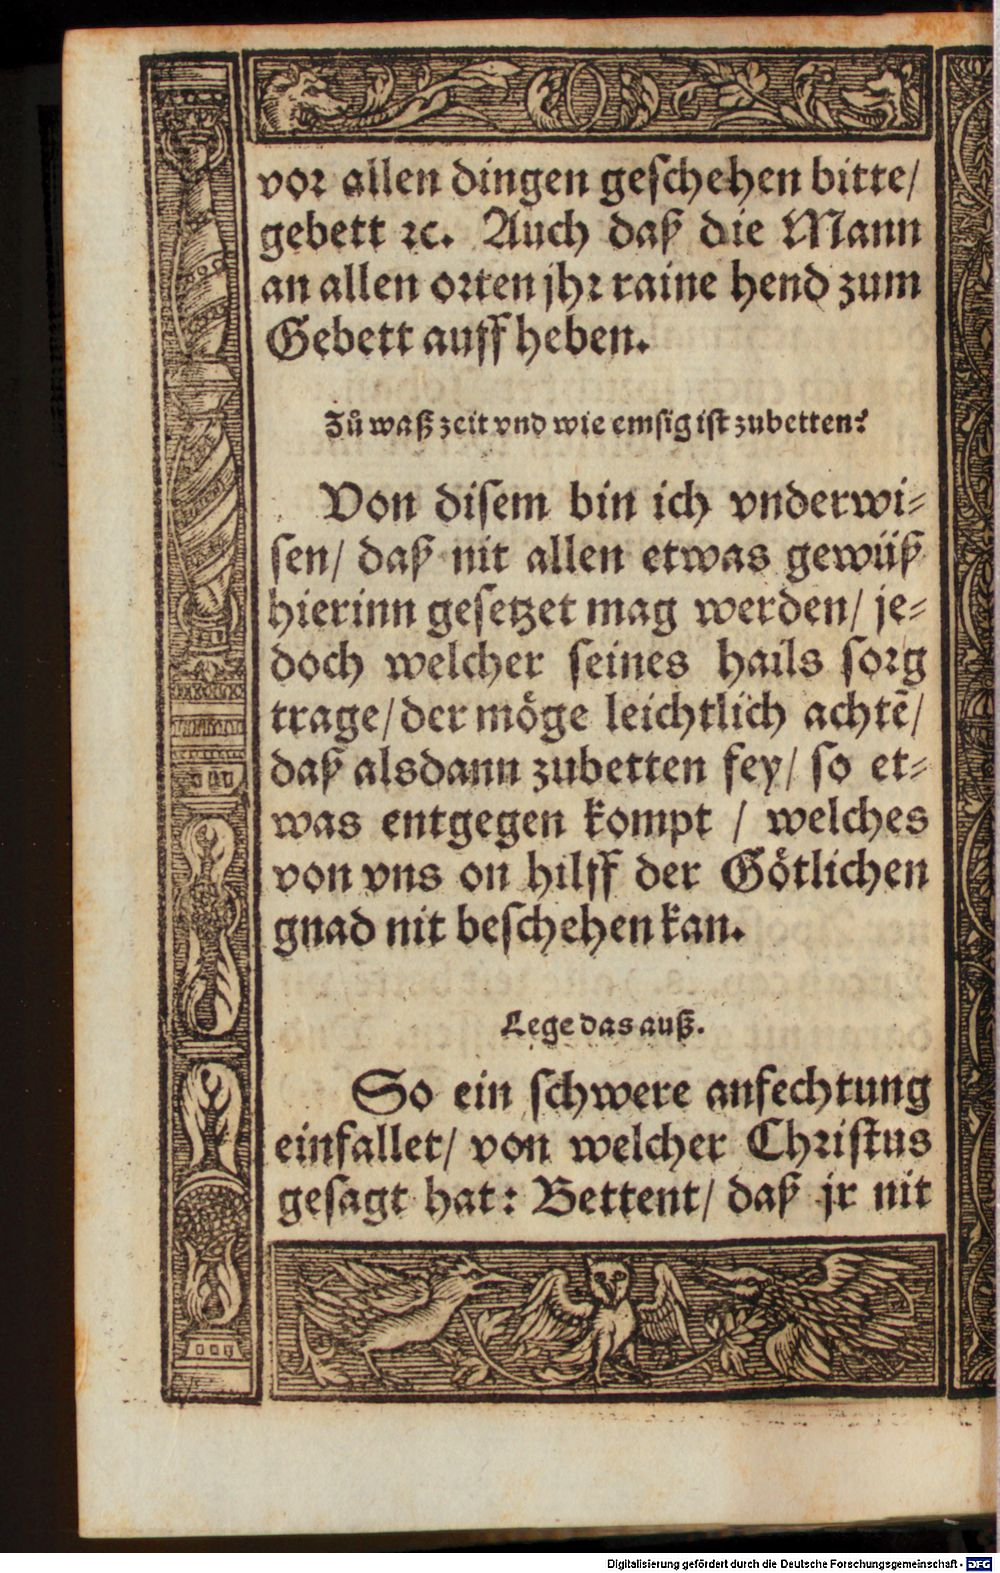 vor allen dingen geschehen bitte/
gebett ꝛc. Auch daß die Mann
an allen orten jhr raine hend zum
Gebett auff heben.
Zů waß zeit vnd wie emsig ist zubetten?
Von disem bin ich vnderwi⸗
sen/ daß nit allen etwas gewüß
hierinn gesetzet mag werden/ je⸗
doch welcher seines hails sorg
trage/ der möge leichtlich achtẽ/
daß alsdann zubetten sey/ so et⸗
was entgegen kompt / welches
von vns on hilff der Götlichen
gnad nit beschehen kan.
Lege das auß.
So ein schwere anfechtung
einfallet/ von welcher Christus
gesagt hat: Bettent/ daß jr nit
Digitalisierung gefördert durch die Deutsche Forschungsgemeinschaft - DFG